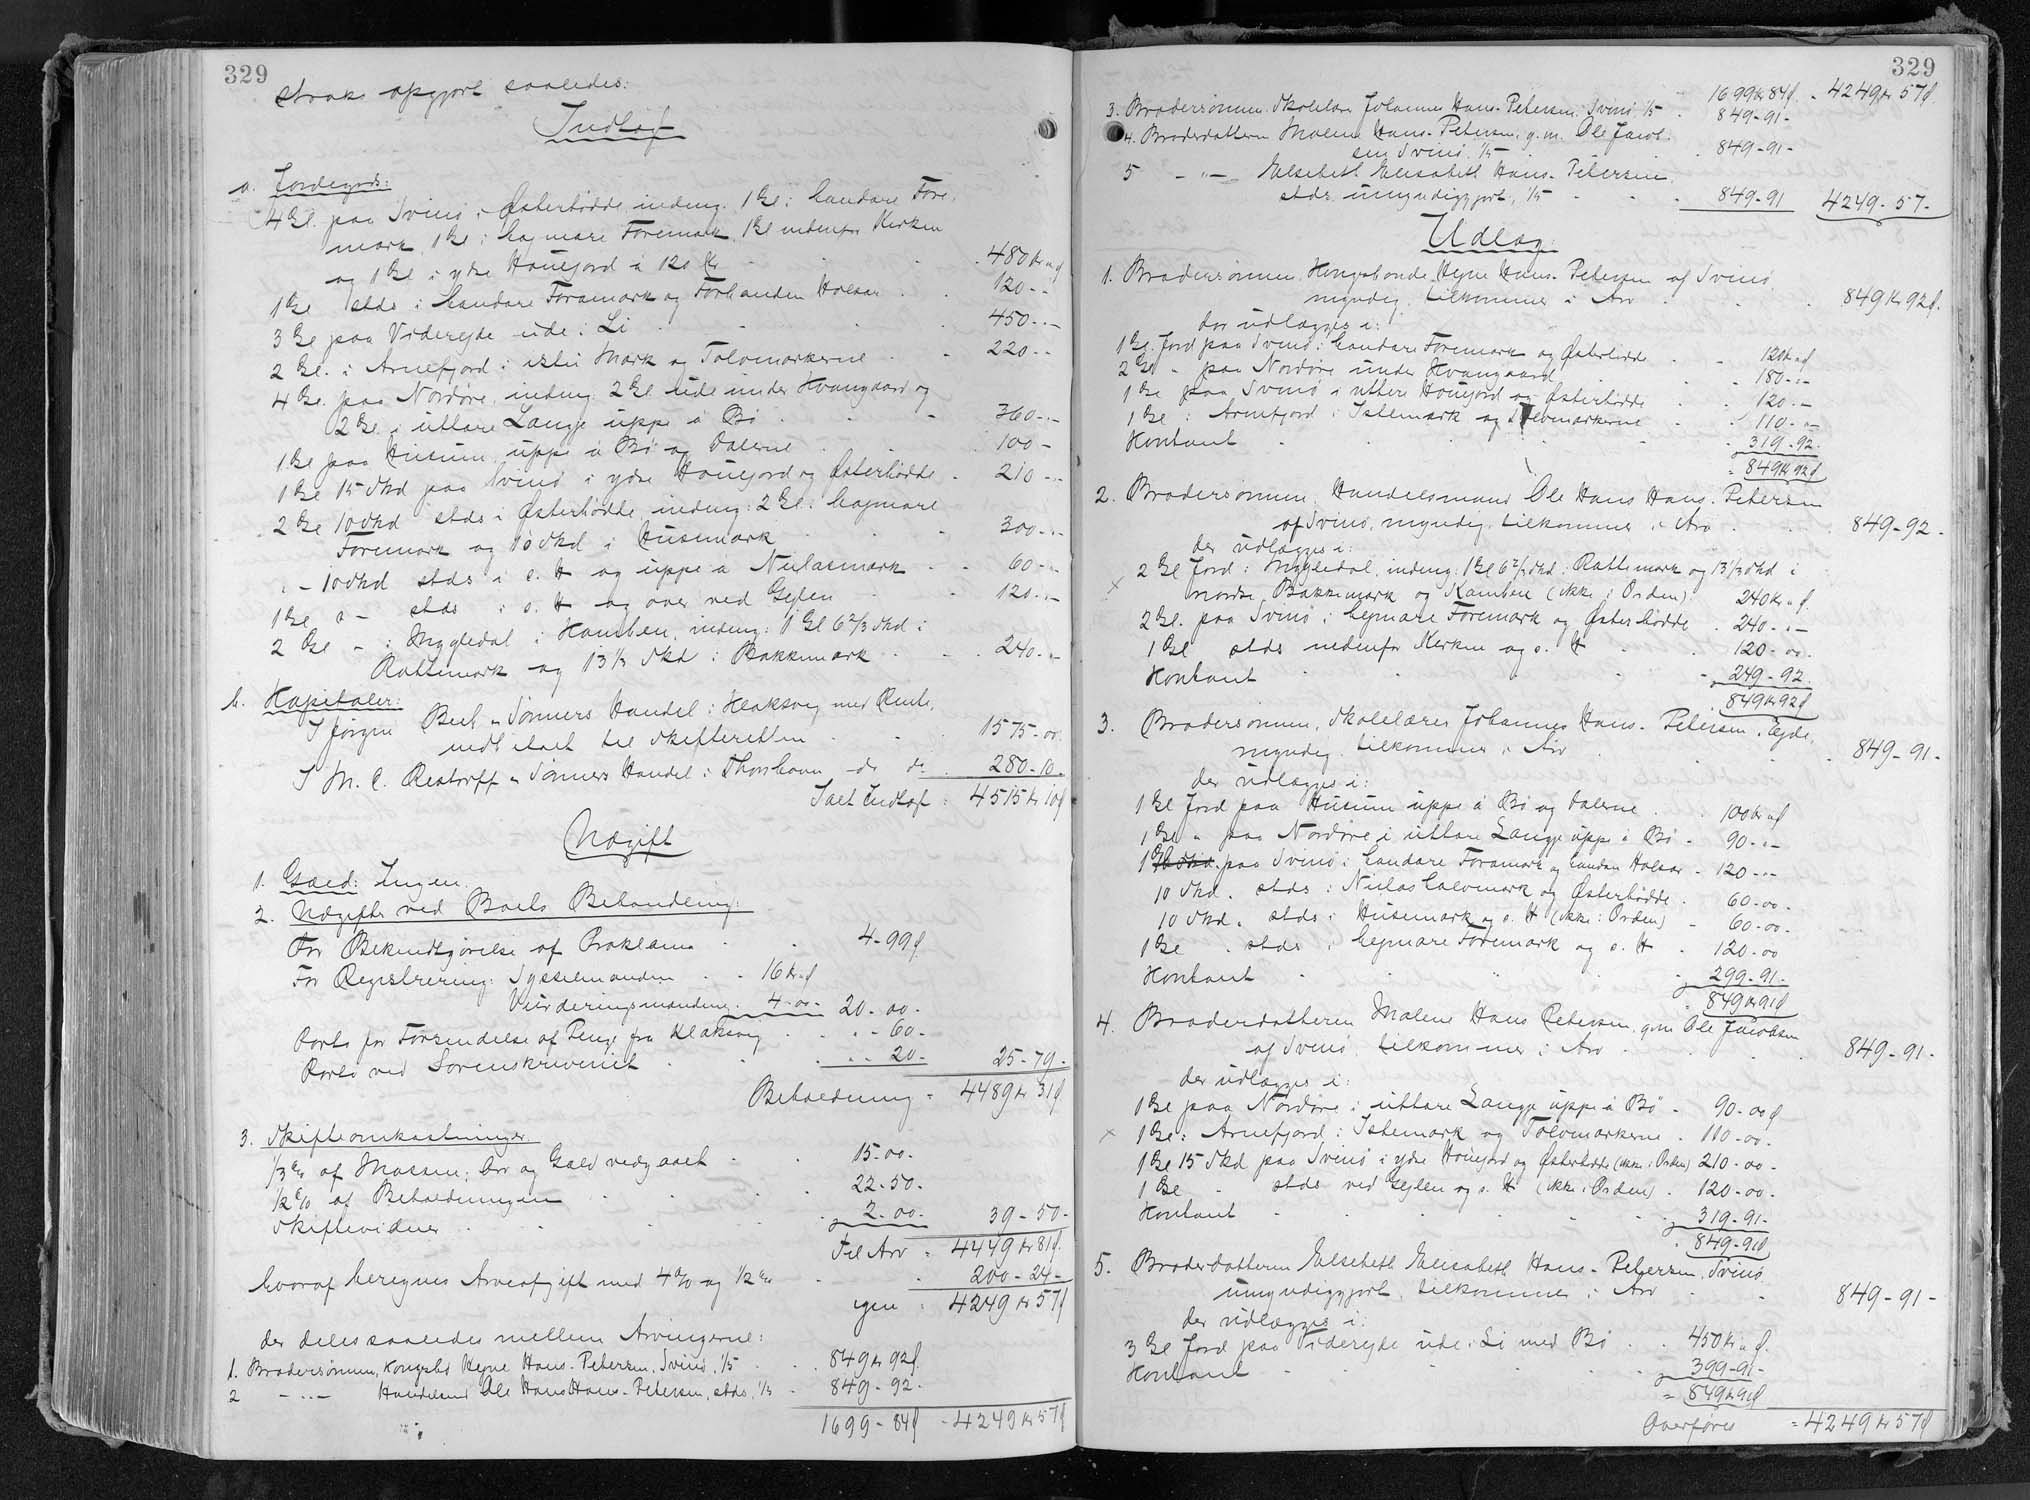 329
strax opgjort saaledes:
Indtægt
a. Jordegods:
4 Gl. paa Svinø i Østerbødde, indeng. 1 Gl. i handare Fore-
mark, 1 Gl. i hagmare Foremark, 1 Gl. nedenfor Kirken
og 1 Gl. i ydre Houefjord à 120 Kr . . 480 Kr " Ø
1 Gl. stds i handare Foramark og Forhanden Holsar . . 120 - "
3 Gl. paa Videregde ude i Li . . 450 - " -
2 Gl. i Arnefjord i istu Mark og Tolvmarkerne . . 220 - "
4 Gl. paa Nordøre, indeng. 2 Gl. ude under Kvanngaard og
2 Gl. i uttare Lange uppe á Bø . . 360 - " -
1 Gl. paa Husum uppe á Bø og Dalerne . . 100 -
1 Gl. 15 Skd paa Svinø i ydre Houefjord og Østerbødde . 210 - " -
2 Gl. 10 Skd stds i Østerbødde, indeng: 2 Gl. i hagmare
Foremark og 10 Skd i Húsemark . . 300 - " -
" - 10 Skd stds i s. H og uppe á Niclasmark . . 60 - " -
1 Gl. " - stds i s. H og over ved Gejlen . . 120 - " -
2 Gl. - i Mygledal i Hamben, indeng: 1 Gl. 6 2/3 Skd i
Rattimark og 13 1/3 Skd i Bakkemark . . 240 - " -
b. Kapitaler:
I Jørgen Bech & Sønners Handel i Klaksvig med Rente,
indbetalt til Skifteretten . . 1575 - 00
I M. C. Restorff & Sønners Handel i Thorshavn - do do . 280 - 10 -
Ialt Indtægt = 4515 Kr 10 Ø
Udgift
1. Gæld: Ingen.
2. Udgifter ved Boets Behandling:
For Bekendtgørelse af Proklama . . 4 - 99 Ø
For Registrering: Sysselmanden . . 16 Kr " Ø
Vurderingsmændene . 4 - 00 - 20 - 00 -
Porto for Forsendelse af Penge fra Klaksvig . . " - 60 -
Porto ved Sorenskriveriet . . " - 20 - 25 - 79 -
Beholdning = 4489 Kr 31 Ø
3. Skifteomkostninger
1/3 % af Massen; Arv og Gæld vedgaaet . . 15 - 00 -
1/2 % af Beholdningen . . 22 - 50 -
Skiftevidner . . 2 - 00 - 39 - 50 -
Til Arv = 4449 Kr 81 Ø
hvoraf beregnes Arveafgift med 4 % og 1/2 % . . 200 - 24 -
igen = 4249 Kr 57 Ø
der deles saaledes mellem Arvingerne:
1. Brodersønnen, Kongsbd. Hejne Hans-Petersen, Svinø, 1/5 . . 849 Kr 92 Ø
2 - " - Handelsmd Ole Hans Hans-Petersen, stds, 1/5 . 849 - 92 -
1699 - 84 Ø - 4249 Kr 57 Ø
329
1699 Kr 84 Ø - 4249 Kr 57 Ø
3. Brodersønnen Skolelærer Johannes Hans-Petersen, Svinø, 1/5 . 849 - 91 -
4. Broderdatteren Malene Hans-Petersen, g. m. Ole Jacob-
sen, Svinø, 1/5 . . 849 - 91 -
5 - " - Elsebeth Elisabeth Hans-Petersen
stds umyndiggjort, 1/5 . . 849 - 91 4249 - 57 -
Udlæg:
1. Brodersønnen Kongsbonde Hejne Hans-Petersen af Svinø
myndig, tilkommer i Arv . . 849 Kr 92 Ø
der udlægges i:
1 Gl. Jord paa Svinø i handare Foremark og Østerbødde . . 120 Kr " Ø
2 Gl. " paa Nordøre under Kvanngaard . . 180 - " -
1 Gl. paa Svinø i uttere Houefjord og Østerbødde . . 120 - " -
1 Gl. i Arnefjord i Istemark og Tolvmarkerne . . 110 - " -
Kontant . . 319 - 92 -
= 849 Kr 92 Ø
2. Brodersønnen, Handelsmand Ole Hans Hans-Petersen
af Svinø, myndig, tilkommer i Arv . . 849 - 92 -
der udlægges i:
x 2 Gl. Jord i Mygledal, indeng: 1 Gl. 6 2/3 Skd i Rattimark og 13 1/3 Skd i
nordre Bakkemark og Kamben (ikke i Orden) 240 Kr " Ø
2 Gl. paa Svinø i hegmare Foremark og Østerbødde . 240 - " -
1 Gl. stds nedenfor Kirken og s. H . . 120 - 00 -
Kontant . . 249 - 92 -
849 Kr 92 Ø
3. Brodersønnen, Skolelærer Johannes Hans-Petersen, Ejde,
myndig, tilkommer i Arv . . 849 - 91 -
der udlægges i:
1 Gl. Jord paa Husum uppe á Bø og Dalerne . . 100 Kr " Ø
1 Gl. " paa Nordøre i uttare Lange uppe á Bø . 90 - " -
1 Gl. paa Svinø i handare Foramark og handan Holsar . 120 - " -
10 Skd. stds i Niclas halvmark og Østerbødde . 60 - 00 -
10 Skd. stds i Húsemark og s. H (ikke i Orden) . 60 - 00 -
1 Gl. . stds i hegmare Foremark og s. H . 120 - 00
Kontant . . 299 - 91 -
849 Kr 91 Ø
4. Broderdatteren Malene Hans Petersen, gm Ole Jacobsen
af Svinø, tilkommer i Arv . . 849 - 91 -
der udlægges i:
1 Gl. paa Nordøre i uttare Lange uppe á Bø . 90 - 00 Ø
x 1 Gl. i Arnefjord i Istemark og Tolvmarkerne . 110 - 00 -
1 Gl. 15 Skd paa Svinø i ydre Houefjord og Østerbødde (ikke i Orden) 210 - 00 -
1 Gl. - stds ved Gejlen og s. H (ikke i Orden) . 120 - 00 -
Kontant . . 319 - 91 -
849 - 91 Ø
5. Broderdatteren Elsebeth Elisabeth Hans-Petersen, Svinø
umyndiggjort, tilkommer i Arv . . 849 - 91 -
der udlægges i:
3 Gl. Jord paa Videregde ude i Li med Bø . . 450 Kr " Ø
Kontant . . 399 - 91 -
= 849 Kr 91 Ø
Overføres = 4249 Kr 57 Ø